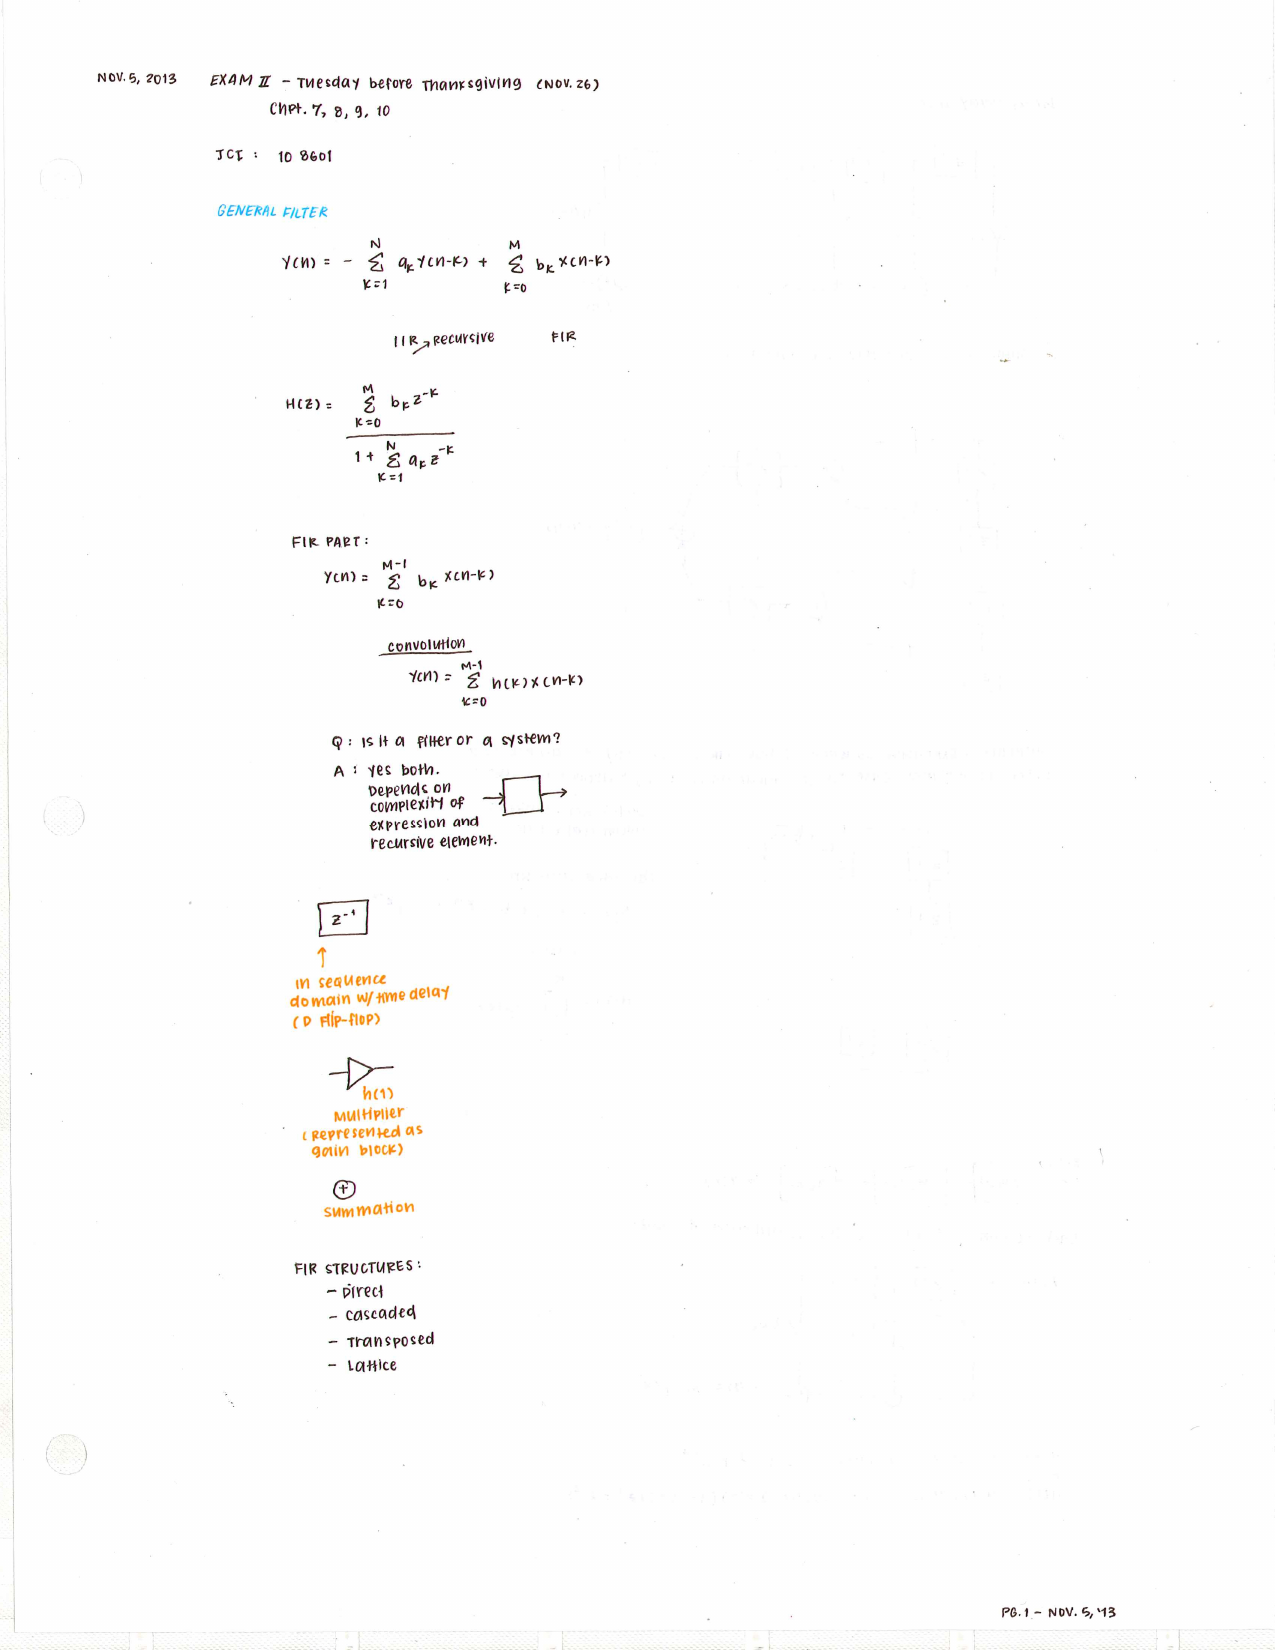 NOV. 5, 2013 EXAM II - Tuesday before Thanksgiving (NOV. 26)
Chpt. 7, 8, 9, 10
JCI : 10 8601
GENERAL FILTER
y(n) = - Σ_{k=1}^{N} a_k y(n-k) + Σ_{k=0}^{M} b_k x(n-k)
IIR → Recursive FIR
H(z) = Σ_{k=0}^{M} b_k z^{-k}
1 + Σ_{k=1}^{N} a_k z^{-k}
FIR PART:
y(n) = Σ_{k=0}^{M-1} b_k x(n-k)
convolution
y(n) = Σ_{k=0}^{M-1} h(k) x(n-k)
Q : Is it a filter or a system?
A : Yes both.
Depends on
complexity of
expression and
recursive element.
z^{-1}
↑
in sequence
domain w/ time delay
(D Flip-flop)
h(1)
Multiplier
(Represented as
gain block)
+
summation
FIR STRUCTURES:
- Direct
- cascaded
- Transposed
- Lattice
PG. 1 - NOV. 5, '13